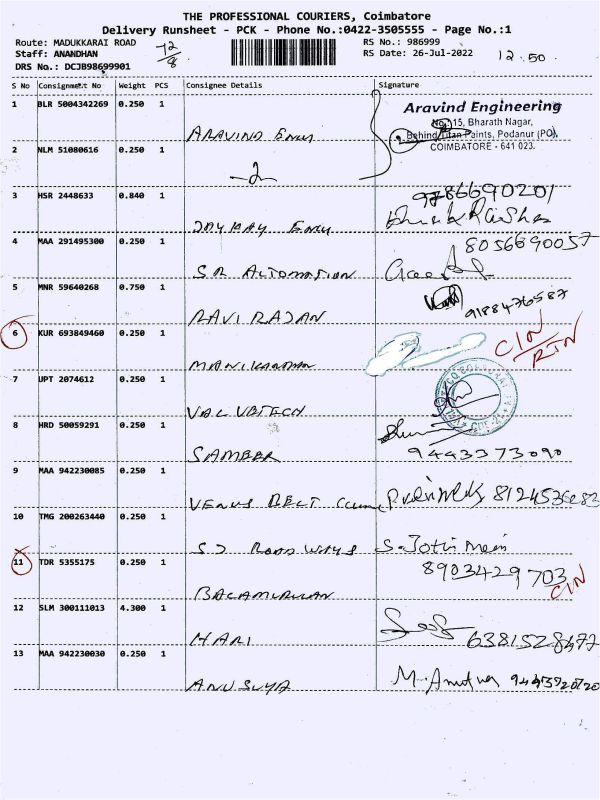 THE PROFESSIONAL COURIERS, Coimbatore
Delivery Runsheet - PCK - Phone No.:0422-3505555 - Page No.:1
Route: MADUKKARAI ROAD
RS No.: 986999
Staff: ANANDHAN
12/8
RS Date: 26-Jul-2022
12.50
DRS No.: DCJB98699901
S No Consignment No Weight PCS Consignee Details Signature
1 BLR 5004342269 0.250 1
Aravind Engineering
No. 15, Bharath Nagar,
Behind Titan Paints, Podanur (PO),
COIMBATORE - 641 023.
ARAVIND Engg
2 NLM 51080616 0.250 1
-2-
3 HSR 2448633 0.840 1
9786690201
JAYKAY Engg
4 MAA 291495300 0.250 1
8056690057
S.R AUTOMATION
5 MNR 59640268 0.750 1
9188476587
RAVI RAJAN
6 KUR 693849460 0.250 1
CIN/RTN
MANIKANDAN
7 UPT 2074612 0.250 1
VALVETECH
8 HRD 50059291 0.250 1
9443373090
SAMEER
9 MAA 942230085 0.250 1
VENUS BELT
10 TMG 200263440 0.250 1
SJ ROADWAYS S. Jothi Mani
11 TDR 5355175 0.250 1
8903429703
CIN
BALAMURUGAN
12 SLM 300111013 4.300 1
HARI
6381528477
13 MAA 942230030 0.250 1
ANUSUYA